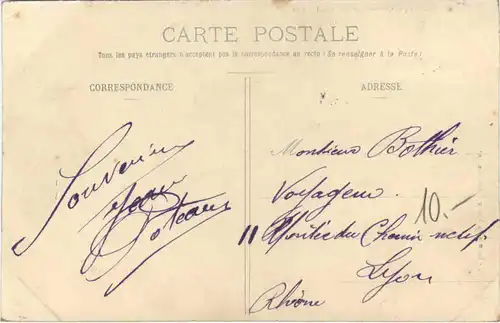 CARTE POSTALE
Tous les pays étrangers n'acceptent pas la correspondance au recto (Se renseigner à la Poste)
CORRESPONDANCE
ADRESSE
Souvenir
Monsieur Bothier
Voyageur
10.-
11 Montée du Chemin neuf
Lyon
Rhône